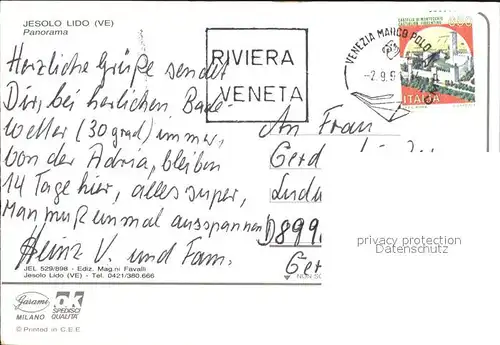 JESOLO LIDO (VE)
Panorama
RIVIERA
VENETA
VENEZIA MARCO POLO
-2.9.9
CASTELLO DI MONTECCHIO
CASTIGLION FIORENTINO
ITALIA
Herzliche Grüße sendet
Dir, bei herlichen Bade-
wetter (30 grad) immer,
von der Adria, bleiben
14 Tage hier, alles super,
Man muß einmal ausspannen
Heinz V. und Fam.
An Frau
Gerd
Ludw
D899
Ger
JEL 529/898 - Ediz. Mag.ni Favalli
Jesolo Lido (VE) - Tel. 0421/380.666
NON SC
Garami
MILANO
OK
SPEDISCI
QUALITA'
© Printed in C.E.E.
Privacy Protection
oldthing.de